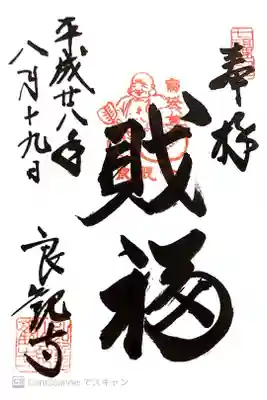 奉拝
財福
平成廿八年
八月十九日
良観寺
CamScanner でスキャン